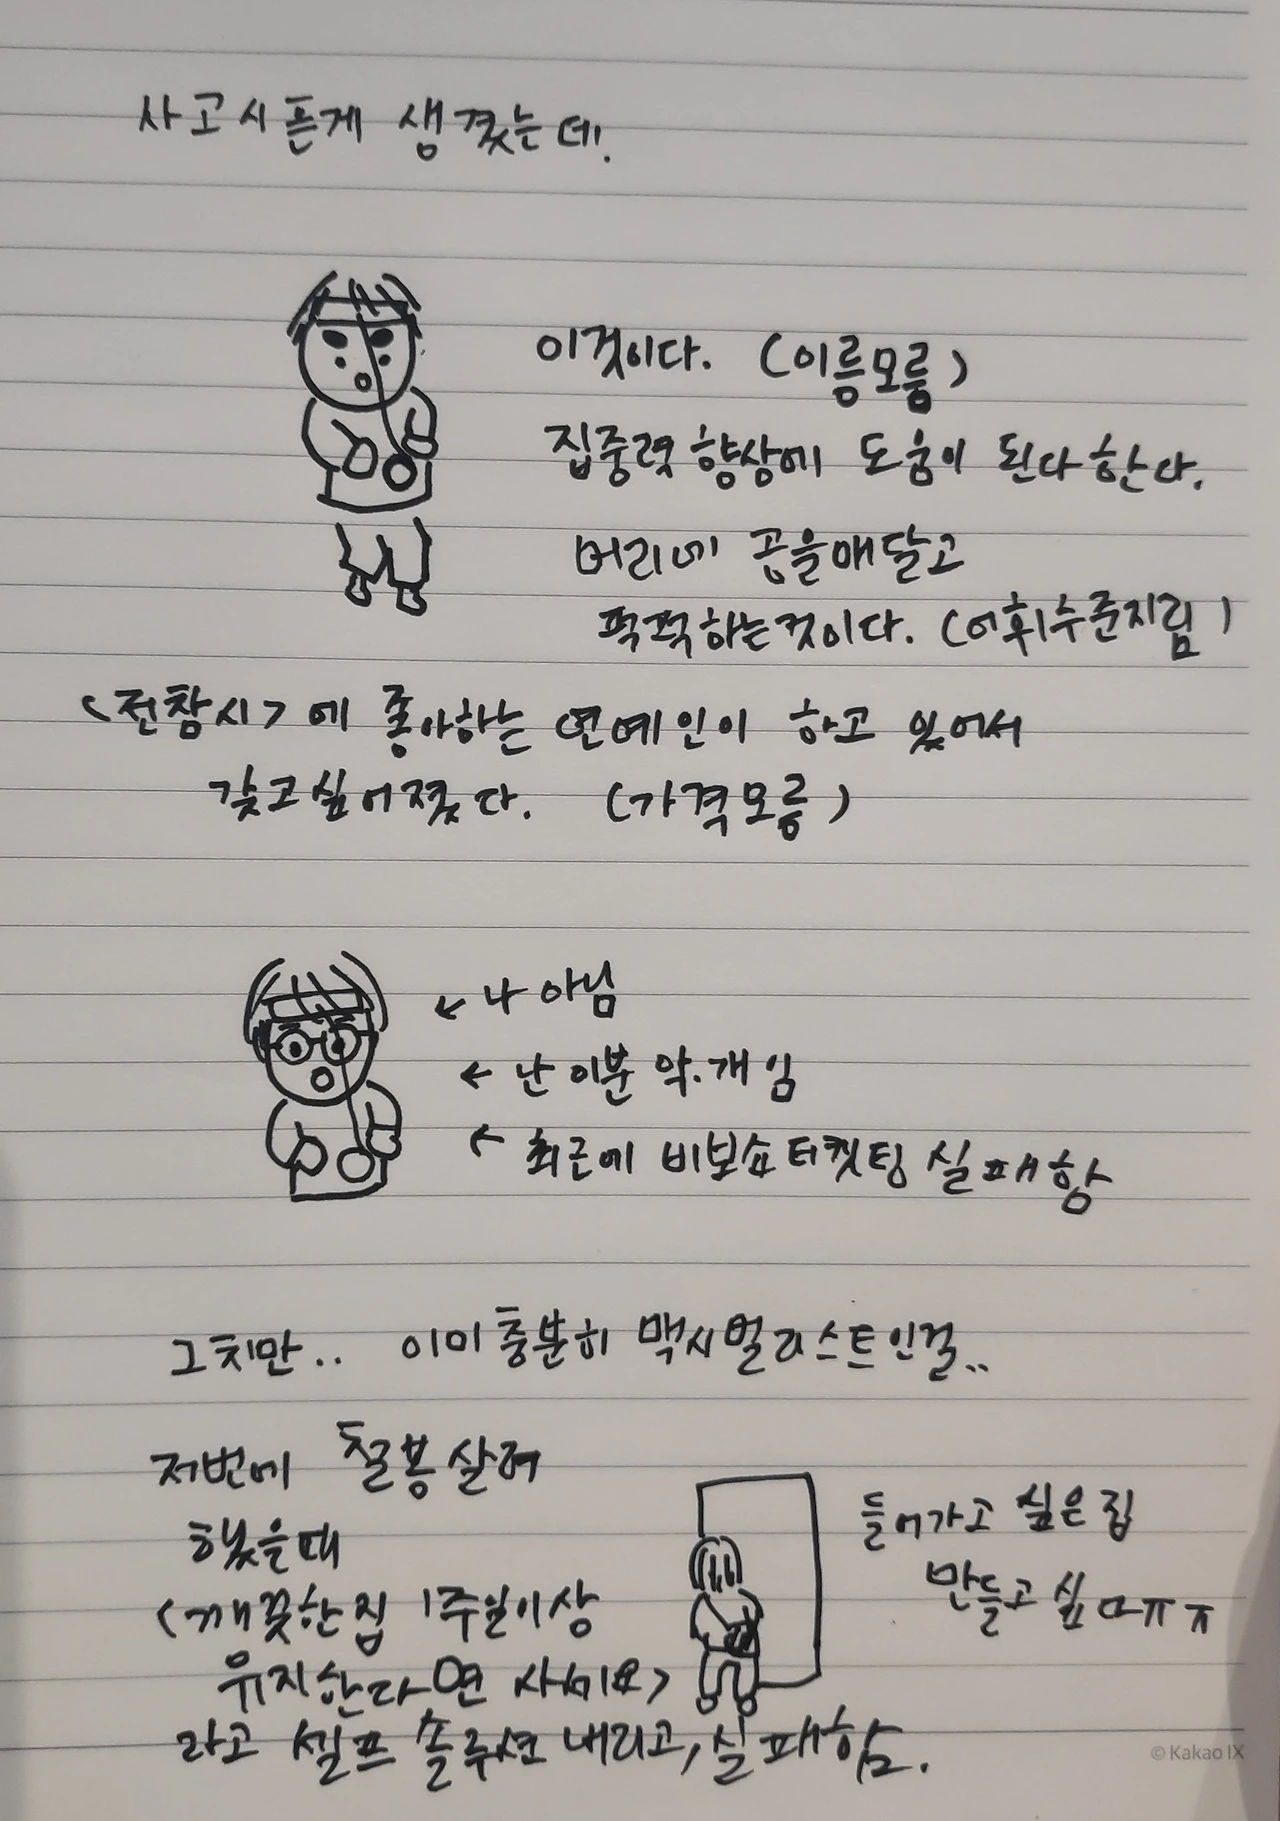 사고시픈게 생겼는데.
이것이다. (이름모름)
집중력 향상에 도움이 된다한다.
머리에 공을매달고
퍽퍽하는것이다. (어휘수준지림)
<전참시>에 좋아하는 연예인이 하고 있어서
갖고싶어졌다. (가격모름)
← 나 아님
← 난 이분 악.개임
← 최근에 비보쇼 티켓팅 실패함
그치만.. 이미 충분히 맥시멀리스트인걸..
저번에 철봉살려
했을때
<깨끗한집 1주일이상
유지한다면 사세요>
라고 셀프 솔루션 내리고, 실패함.
들어가고 싶은집
만들고 싶ㅁㅠㅠ
© Kakao IX